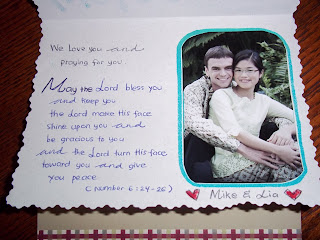 We Love you and
praying for you.
May the Lord bless you
and keep you
the Lord make His face
shine upon you and
be gracious to you
and the Lord turn His face
toward you and give
you peace
(Number 6:24-26)
Mike & Lia